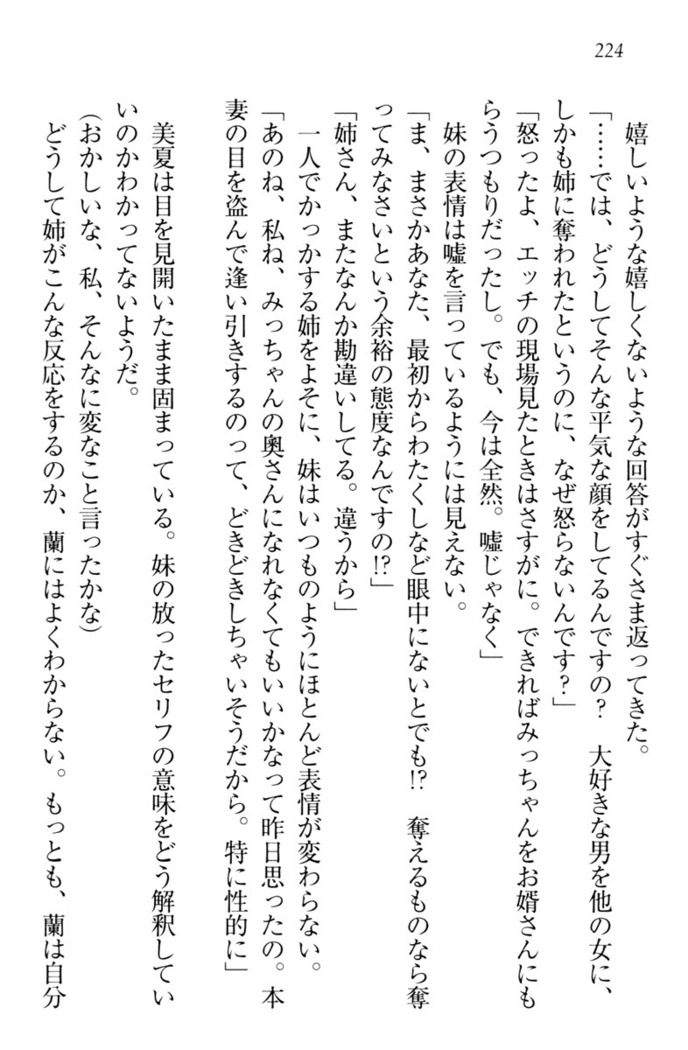 224
嬉しいような嬉しくないような回答がすぐさま返ってきた。
「……では、どうしてそんな平気な顔をしてるんですの？　大好きな男を他の女に、
しかも姉に奪われたというのに、なぜ怒らないんです？」
「怒ったよ、エッチの現場見たときはさすがに。できればみっちゃんをお婿さんにも
らうつもりだったし。でも、今は全然。嘘じゃなく」
妹の表情は嘘を言っているようには見えない。
「ま、まさかあなた、最初からわたくしなど眼中にないとでも!?　奪えるものなら奪
ってみなさいという余裕の態度なんですの!?」
「姉さん、またなんか勘違いしてる。違うから」
一人でかっかする姉をよそに、妹はいつものようにほとんど表情が変わらない。
「あのね、私ね、みっちゃんの奥さんになれなくてもいいかなって昨日思ったの。本
妻の目を盗んで逢い引きするのって、どきどきしちゃいそうだから。特に性的に」
美夏は目を見開いたまま固まっている。妹の放ったセリフの意味をどう解釈してい
いのかわかってないようだ。
（おかしいな、私、そんなに変なこと言ったかな）
どうして姉がこんな反応をするのか、蘭にはよくわからない。もっとも、蘭は自分